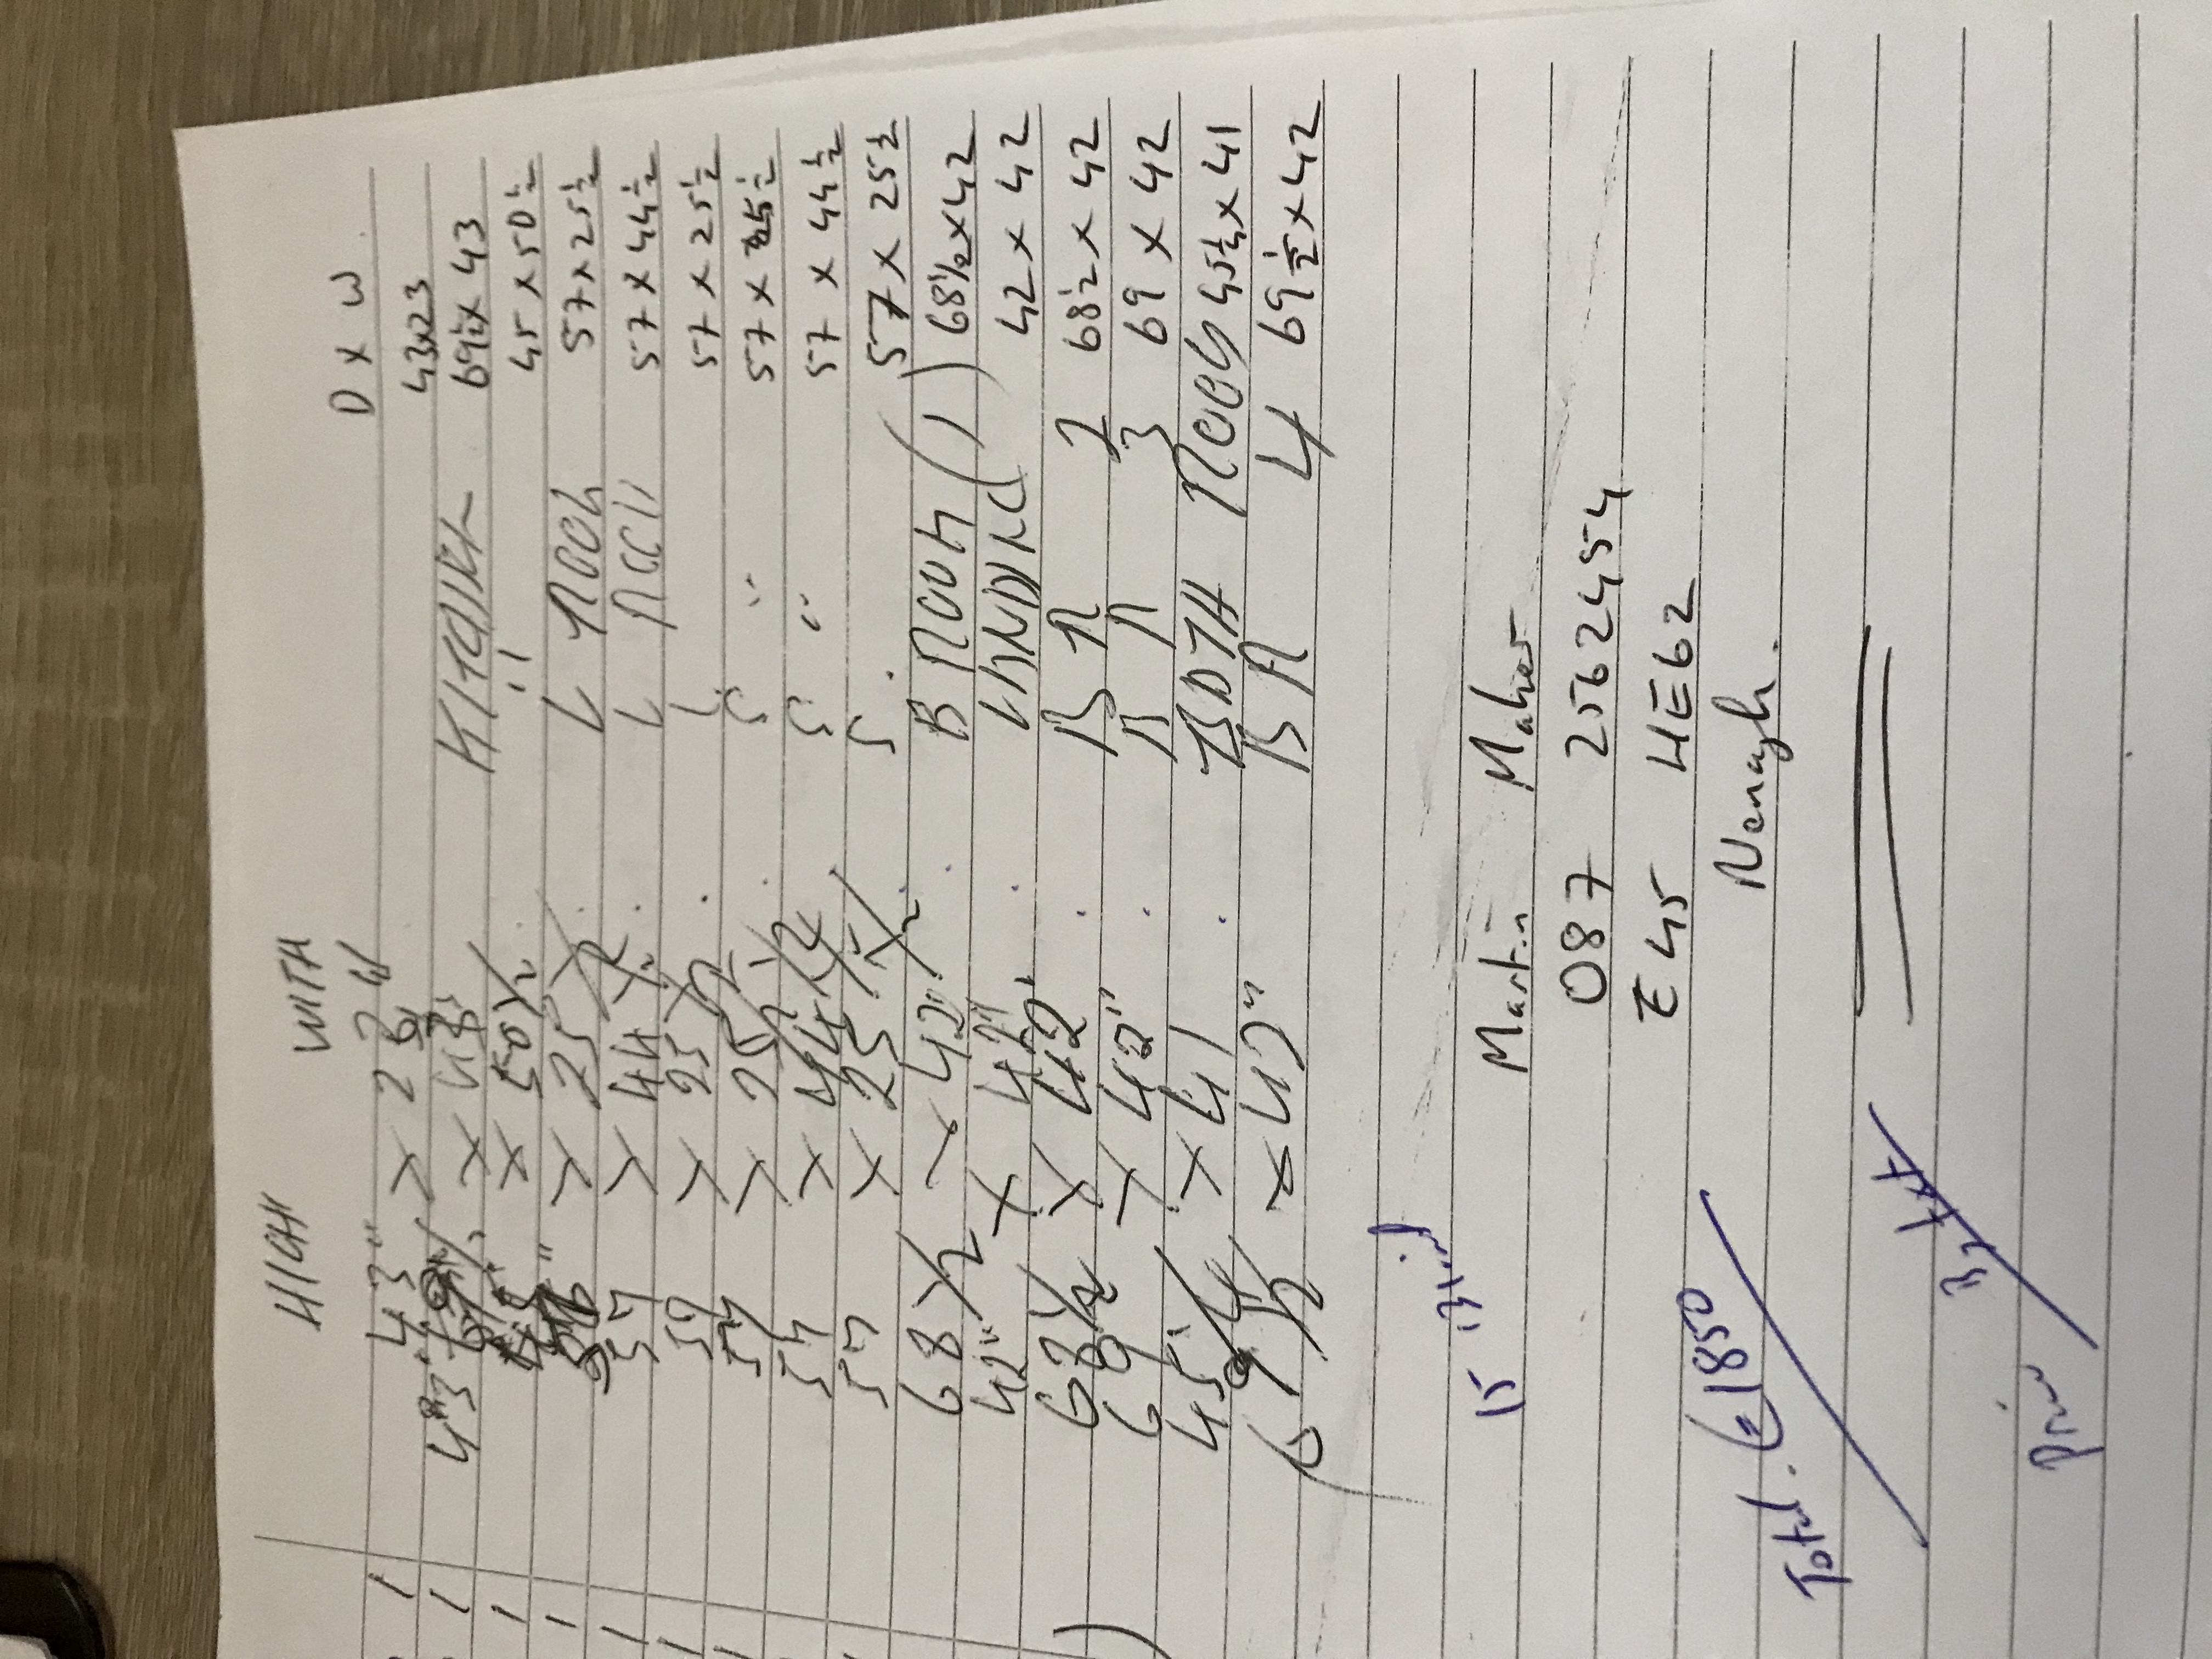 HIGH WITH
W D x W
1 43" x 23 43x23
1 x 43 KITCHEN 69½x 43
1 x 50½ " 45 x 50½
1 x 25½ L ROOM 57x25½
1 57 x 44½ L ROOM 57 x 44½
1 57 x 25½ L 57 x 25½
57 x 25½ S " 57 x 25½
57 x 44½ S " 57 x 44½
57 x 25½ S 57 x 25½
68½ x 42" B ROOM (1) 68½x42
42" x 42" LANDING 42 x 42
68½ x 42" B R 2 68½ x 42
69 x 42" B R 3 69 x 42
45¼ x 41 BATH ROOM 45¼x 41
69½ x 42" B R 4 69½x42
15
Martin Maher
087 2562454
E45 HE62
Nenagh.
Total. €1850
Price